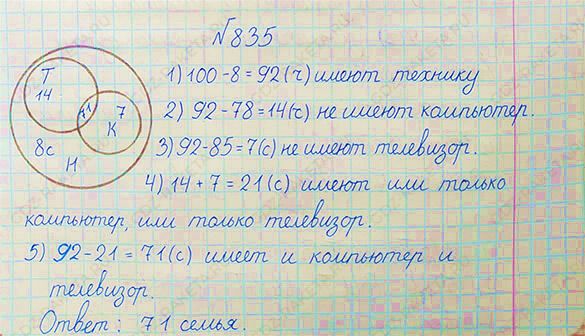 №835
Т
14
71
7
К
8с
Н
1) 100-8=92(ч) имеют технику
2) 92-78=14(ч) не имеют компьютер.
3) 92-85=7(с) не имеют телевизор.
4) 14+7=21(с) имеют или только
компьютер, или только телевизор.
5) 92-21=71(с) имеет и компьютер и
телевизор.
Ответ: 71 семья.